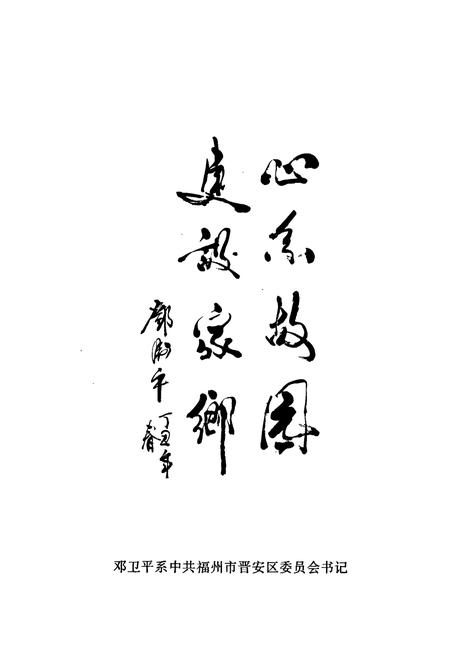 心系故园
建设家乡
鄧衛平
丁丑年
春
邓卫平系中共福州市晋安区委员会书记